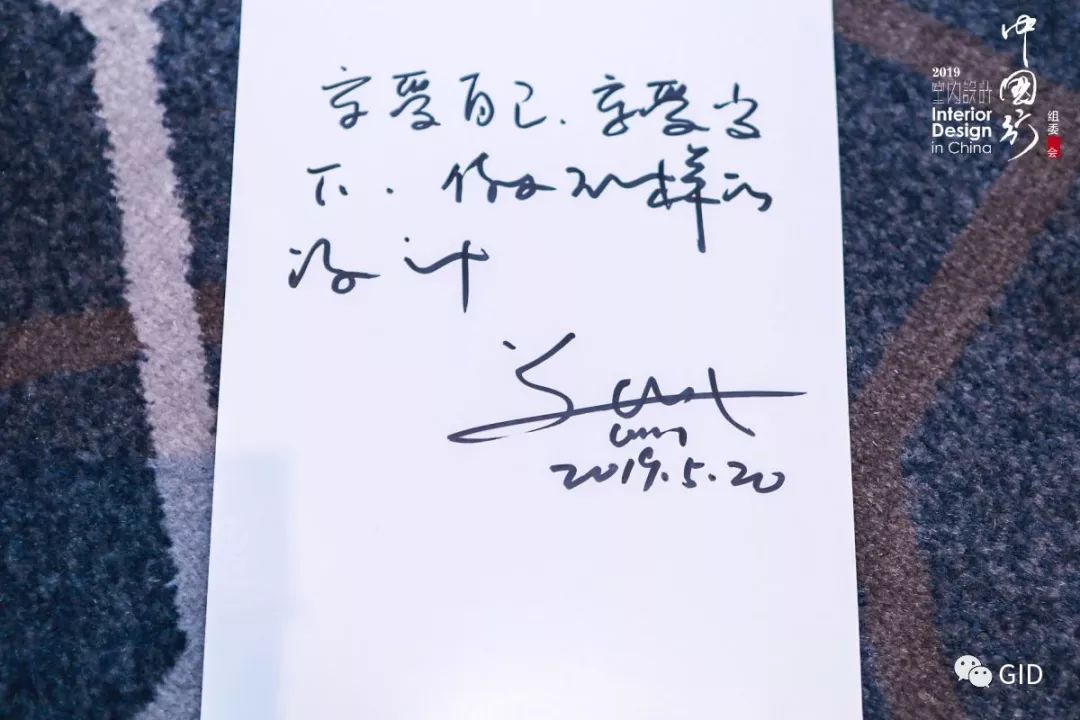 享受自己、享受当
下.做不一样的
设计
2019.5.20
2019
室内設計
Interior
Design
in China
中国行
组委会
GID